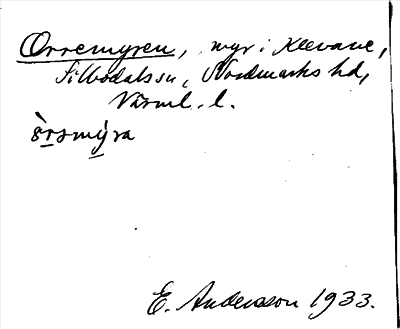 Orremyren, myr i Klevane,
Silbodals sn, Nordmarks hd,
Värml. l.
E. Andersson 1933.